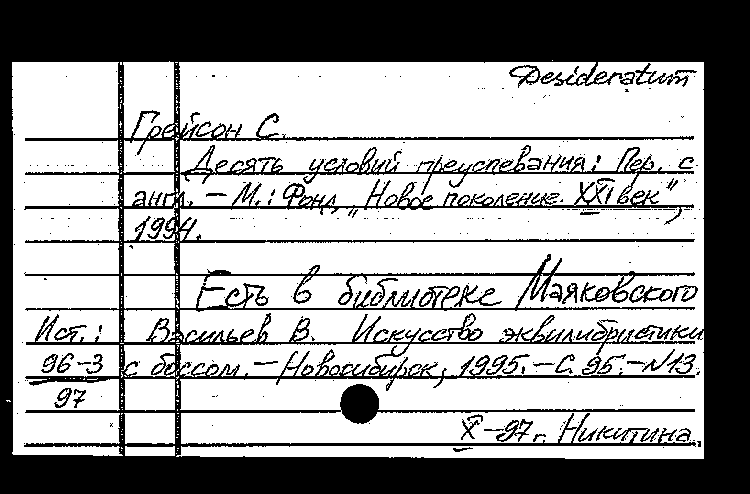 Desideratum
Грейсон С.
Десять условий преуспевания: Пер. с
англ. – М.: Фонд „Новое поколение. XXI век",
1994.
Есть в библиотеке Маяковского
Ист.: Васильев В. Искусство эквилибристики
96-3 с боссом. – Новосибирск, 1995. – С. 95. – N13.
97
X – 97 г. Никитина